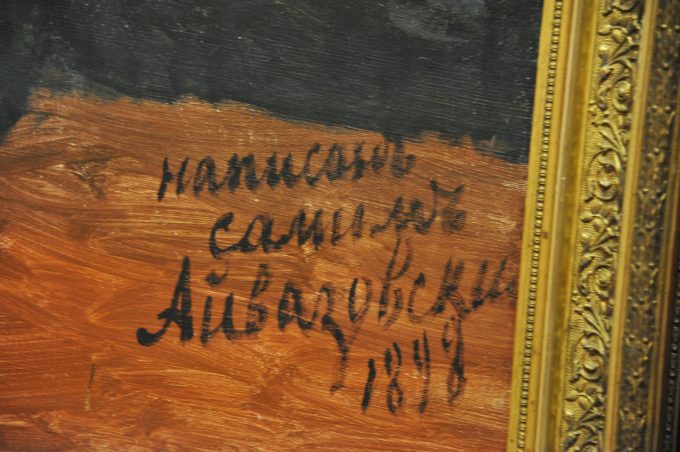 написанъ
самимъ
Айвазовски
1898